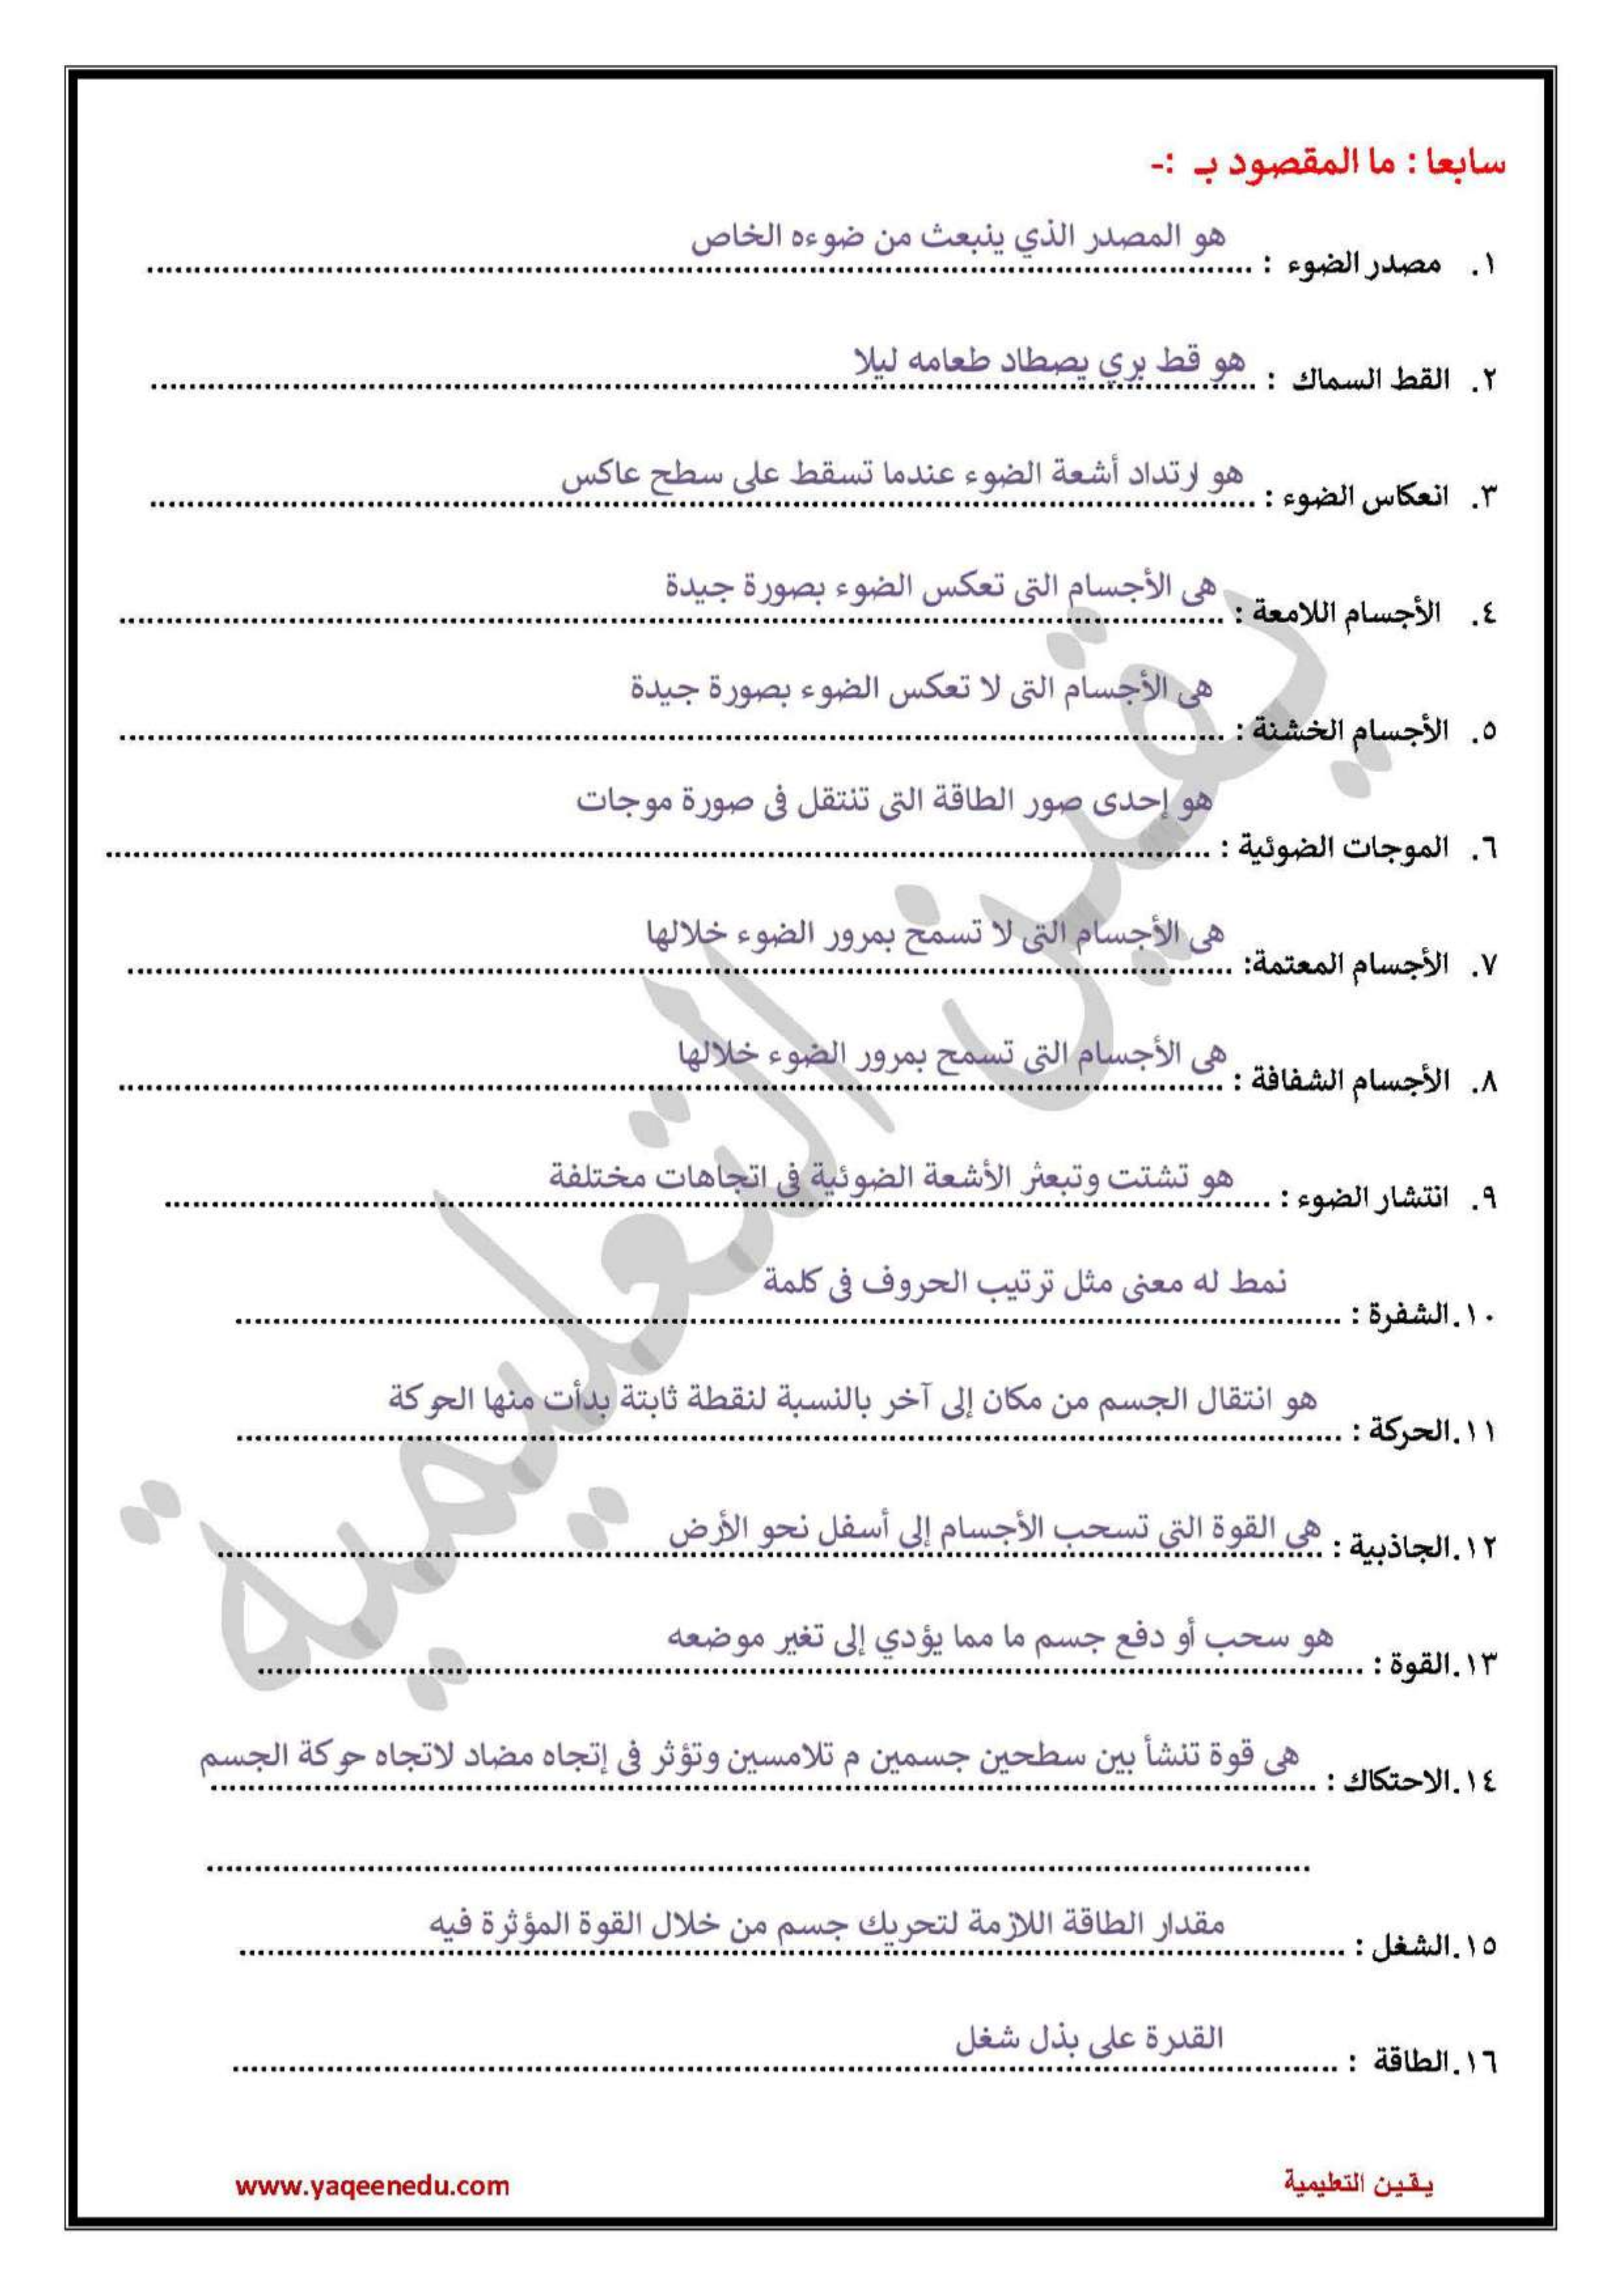 سابعا : ما المقصود بـ :-
١. مصدر الضوء : هو المصدر الذي ينبعث من ضوءه الخاص
٢. القط السماك : هو قط بري يصطاد طعامه ليلا
٣. انعكاس الضوء : هو ارتداد أشعة الضوء عندما تسقط على سطح عاكس
٤. الأجسام اللامعة : هى الأجسام التى تعكس الضوء بصورة جيدة
٥. الأجسام الخشنة : هى الأجسام التى لا تعكس الضوء بصورة جيدة
٦. الموجات الضوئية : هو إحدى صور الطاقة التى تنتقل فى صورة موجات
٧. الأجسام المعتمة: هى الأجسام التى لا تسمح بمرور الضوء خلالها
٨. الأجسام الشفافة : هى الأجسام التى تسمح بمرور الضوء خلالها
٩. انتشار الضوء : هو تشتت وتبعثر الأشعة الضوئية فى اتجاهات مختلفة
١٠.الشفرة : نمط له معنى مثل ترتيب الحروف فى كلمة
١١.الحركة : هو انتقال الجسم من مكان إلى آخر بالنسبة لنقطة ثابتة بدأت منها الحركة
١٢.الجاذبية : هى القوة التى تسحب الأجسام إلى أسفل نحو الأرض
١٣.القوة : هو سحب أو دفع جسم ما مما يؤدي إلى تغير موضعه
١٤.الاحتكاك : هى قوة تنشأ بين سطحين جسمين م تلامسين وتؤثر فى إتجاه مضاد لاتجاه حركة الجسم
١٥.الشغل : مقدار الطاقة اللازمة لتحريك جسم من خلال القوة المؤثرة فيه
١٦.الطاقة : القدرة على بذل شغل
يقين التعليمية
يقين التعليمية www.yaqeenedu.com